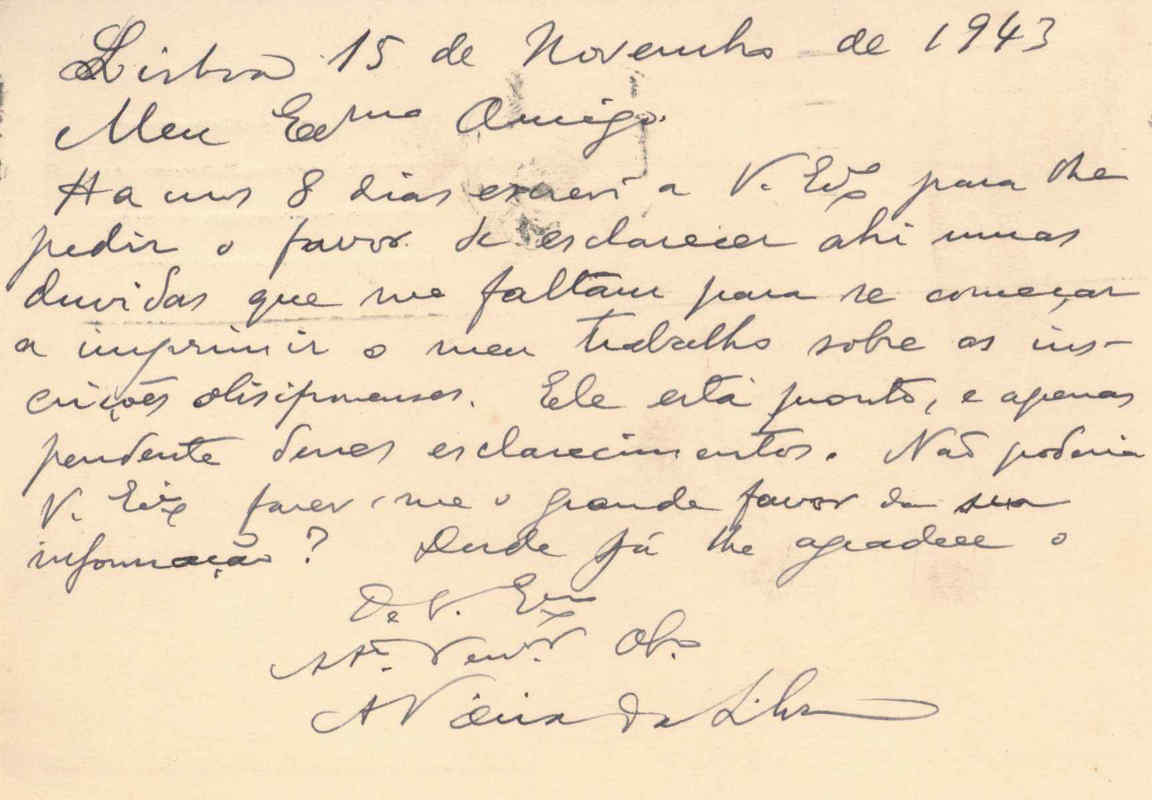 Lisboa 15 de Novembro de 1943
Meu Exmo Amigo.
Ha uns 8 dias escrevi a V. Exª para lhe
pedir o favor de esclarecer ahi umas
duvidas que me faltam para se começar
a imprimir o meu trabalho sobre as ins-
crições olisiponenses. Ele está pronto, e apenas
pendente desses esclarecimentos. Não poderia
V. Exª fazer-me o grande favor da sua
informação? Desde já lhe agradece o
De V. Exª
Attº. Venºr. Obº
A Vieira da Silva